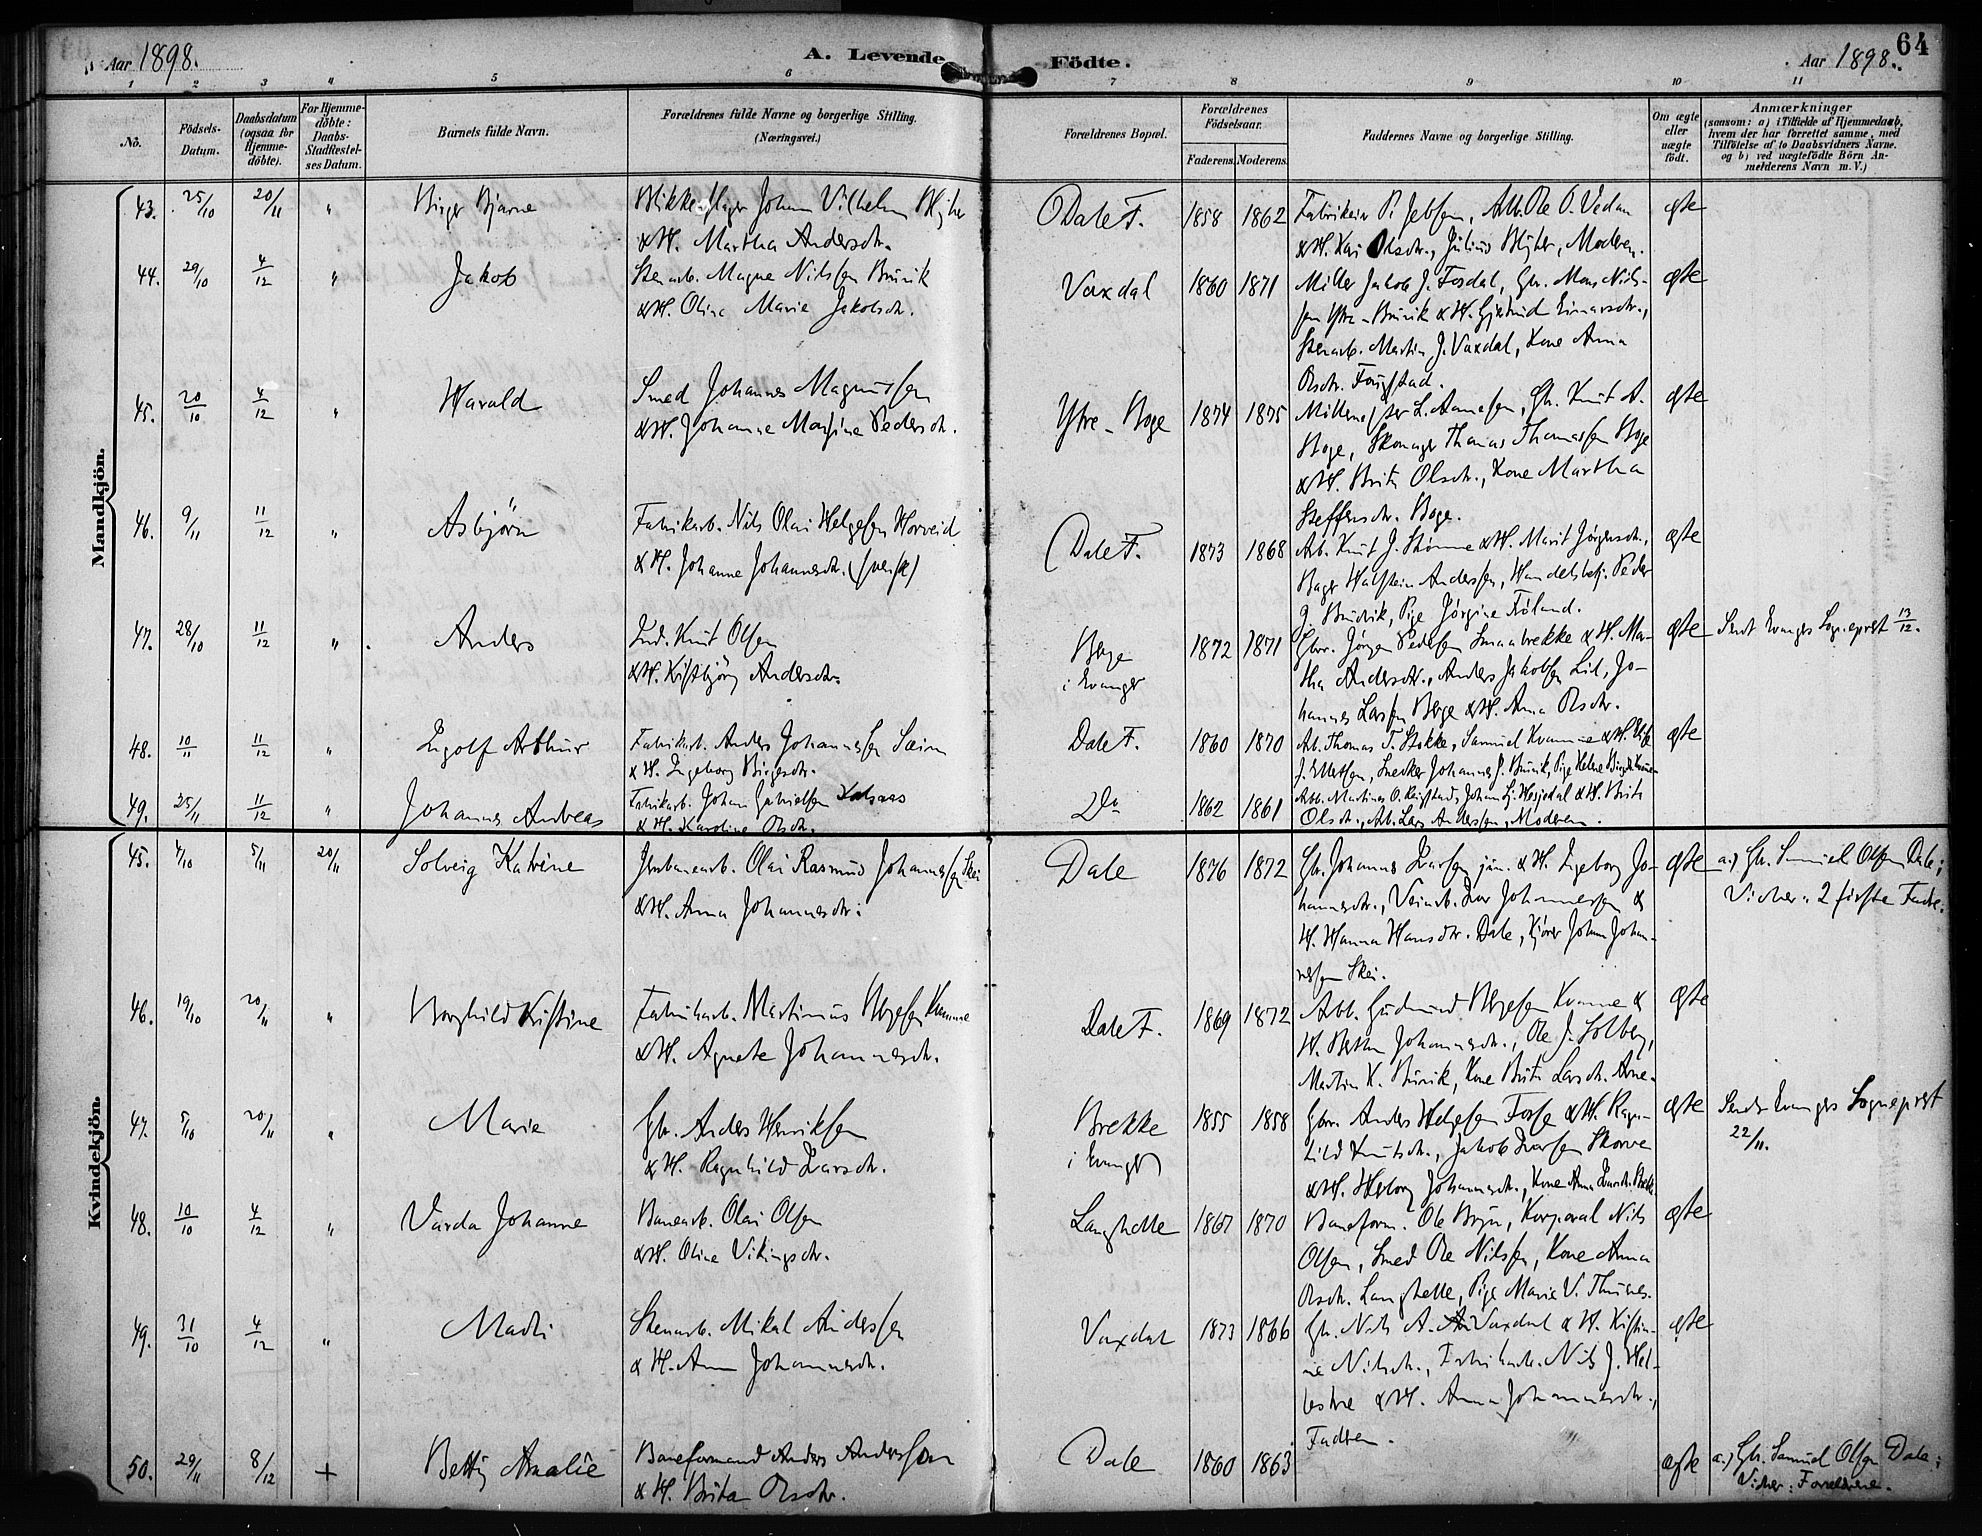 Aar 1898.
A. Levende Födte.
Aar 1898.
64
1 2 3 4 5 6 7 8 9 10 11
No.
Födsels-Datum.
Daabsdatum (ogsaa for Hjemme-döbte).
For Hjemme-döbte: Daabs-Stadfæstel-ses Datum.
Barnets fulde Navn.
Forældrenes fulde Navne og borgerlige Stilling. (Næringsvei.)
Forældrenes Bopæl.
Forældrenes Födselsaar.
Faderens. Moderens.
Faddernes Navne og borgerlige Stilling.
Om ægte eller uægte födt.
Anmærkninger
(saasom: a) i Tilfælde af Hjemmedaab, hvem der har forrettet samme, med Tilföielse af to Daabsvidners Navne. og b) ved uægtefödte Börn An-melderens Navn m. V.)
Mandkjön.
43. 25/10 20/11 " Birger Bjarne
Johan Vilhelm
& H. Martha Andersdtr.
Dale F. 1858 1862
Fabrikeier P. Jebsen, Arb. Ole O. Vedaa
& H. Kari Olsdtr., Julius, Moderen.
ægte
44. 29/10 4/12 " Jakob
Stenarb. Magne Nilssen Burik
& H. Olina Marie Jakobsdtr.
Vaxdal 1860 1871
Møller Jakob J. Fosdal, Gbr. Mons Nils-
sen Ytre-Burik & H. Gjertrud Einarsdtr.,
Stenarb. Martin J. Vaxdal, Kone Anna
Olsdtr.
ægte
45. 20/10 4/12 " Harald
Smed Johannes Magnussen
& H. Johanne Pedersdtr.
Ytre-Boge 1874 1875
Gbr. Knut A.
Boge, Skomager Thomas Thomassen Boge
& H. Brita Olsdtr., Kone Martha
Steffensdtr. Boge.
ægte
46. 9/11 11/12 " Asbjørn
Fabrikarb. Nils Olai Helgesen Horveid
& H. Johanne Johannesdtr.
Dale F. 1873 1868
Arb. Knut J. & H. Marit Jørgensdtr.,
Bager Halstein Andersen, Peder
J. Burik, Pige Jørgine Føland.
ægte
47. 28/10 11/12 " Anders
Ind. Knut Olsen
& H. Kristbjørg Andersdtr.
i Evanger
1872 1871
Gbr. Jørgen Pedersen Smaabrekke & H. Mar-
tha Andersdtr., Anders Jakobsen Lid, Jo-
hannes Larsen & H. Anna Olsdtr.
ægte
Sendt Evangers Sogneprest 13/12.
48. 10/11 11/12 " Ingolf Arthur
Fabrikarb. Anders Johannessen Seim
& H. Ingeborg Birgesdtr.
Dale F. 1860 1870
Arb. Thomas T. Stokke, Samuel Kvamme
Snedker Johannes J. Burik, Pige Helene
ægte
49. 25/11 11/12 " Johannes Andreas
Fabrikarb. Johan Gabrielsen
& H. Karoline Olsdtr.
Do 1862 1861
Arb. Martinus O. Johan & H. Brita
Olsdtr., Arb. Lars Andersen, Moderen.
Kvindekjön.
45. 4/10 5/11 20/11 Solveig Katrine
Jernbanearb. Olai Rasmus Johannessen Skei
& H. Anna Johannesdtr.
Dale 1876 1872
Gbr. Johannes Ivarsen jun. & H. Ingeborg Jo-
hannesdtr., Veiarb. Ivar Johannessen &
H. Hanna Hansdtr. Dale, Kjører Johan Johan-
nessen Skei.
ægte
a) Gbr. Samuel Olsen Dale;
Vidner: 2 første Fadd.
46. 19/10 20/11 " Borghild Kristine
Fabrikarb. Martinius Kvamme
& H. Agnete Johannesdtr.
Dale F. 1869 1872
Arb. Gudmund Kvamme &
H. Johannesdtr., Ole J. Solberg,
Martin K. Burik, Kone Brita Larsdtr.
ægte
47. 5/10 20/11 " Marie
Gbr. Anders Henriksen
& H. Ragnhild Ivarsdtr.
Brekke
i Evanger
1855 1858
Gbr. Anders Helgesen Fosse & H. Ragn-
hild Knutsdtr., Jakob Ivarsen Skorve
& H. Johannesdtr., Kone Anna Ivarsdtr.
ægte
Sendt Evangers Sogneprest
22/11.
48. 10/10 4/12 " Varda Johanne
Banearb. Olai Olsen
& H. Oline Vikingsdtr.
Langhelle 1867 1870
Baneform. Ole Bryn, Korporal Nils
Olsen, Smed Ole Nilssen, Kone Anna
Olsdtr. Langhelle, Pige Marie V. Thunes.
ægte
49. 31/10 4/12 " Marthi
Stenarb. Mikal Andersen
& H. Anna Johannesdtr.
Vaxdal 1873 1866
Gbr. Nils A. Vaxdal & H. Kristin-
ne Nilsdtr., Fabrikarb. Nils J. Hel-
& H. Anna Johannesdtr.,
Fadren.
ægte
50. 29/11 8/12 + Betty Amalie
Baneformand Anders Andersson
& H. Brita Olsdtr.
Dale 1860 1863
ægte
a) Gbr. Samuel Olsen Dale;
Vidner: Forældrene.